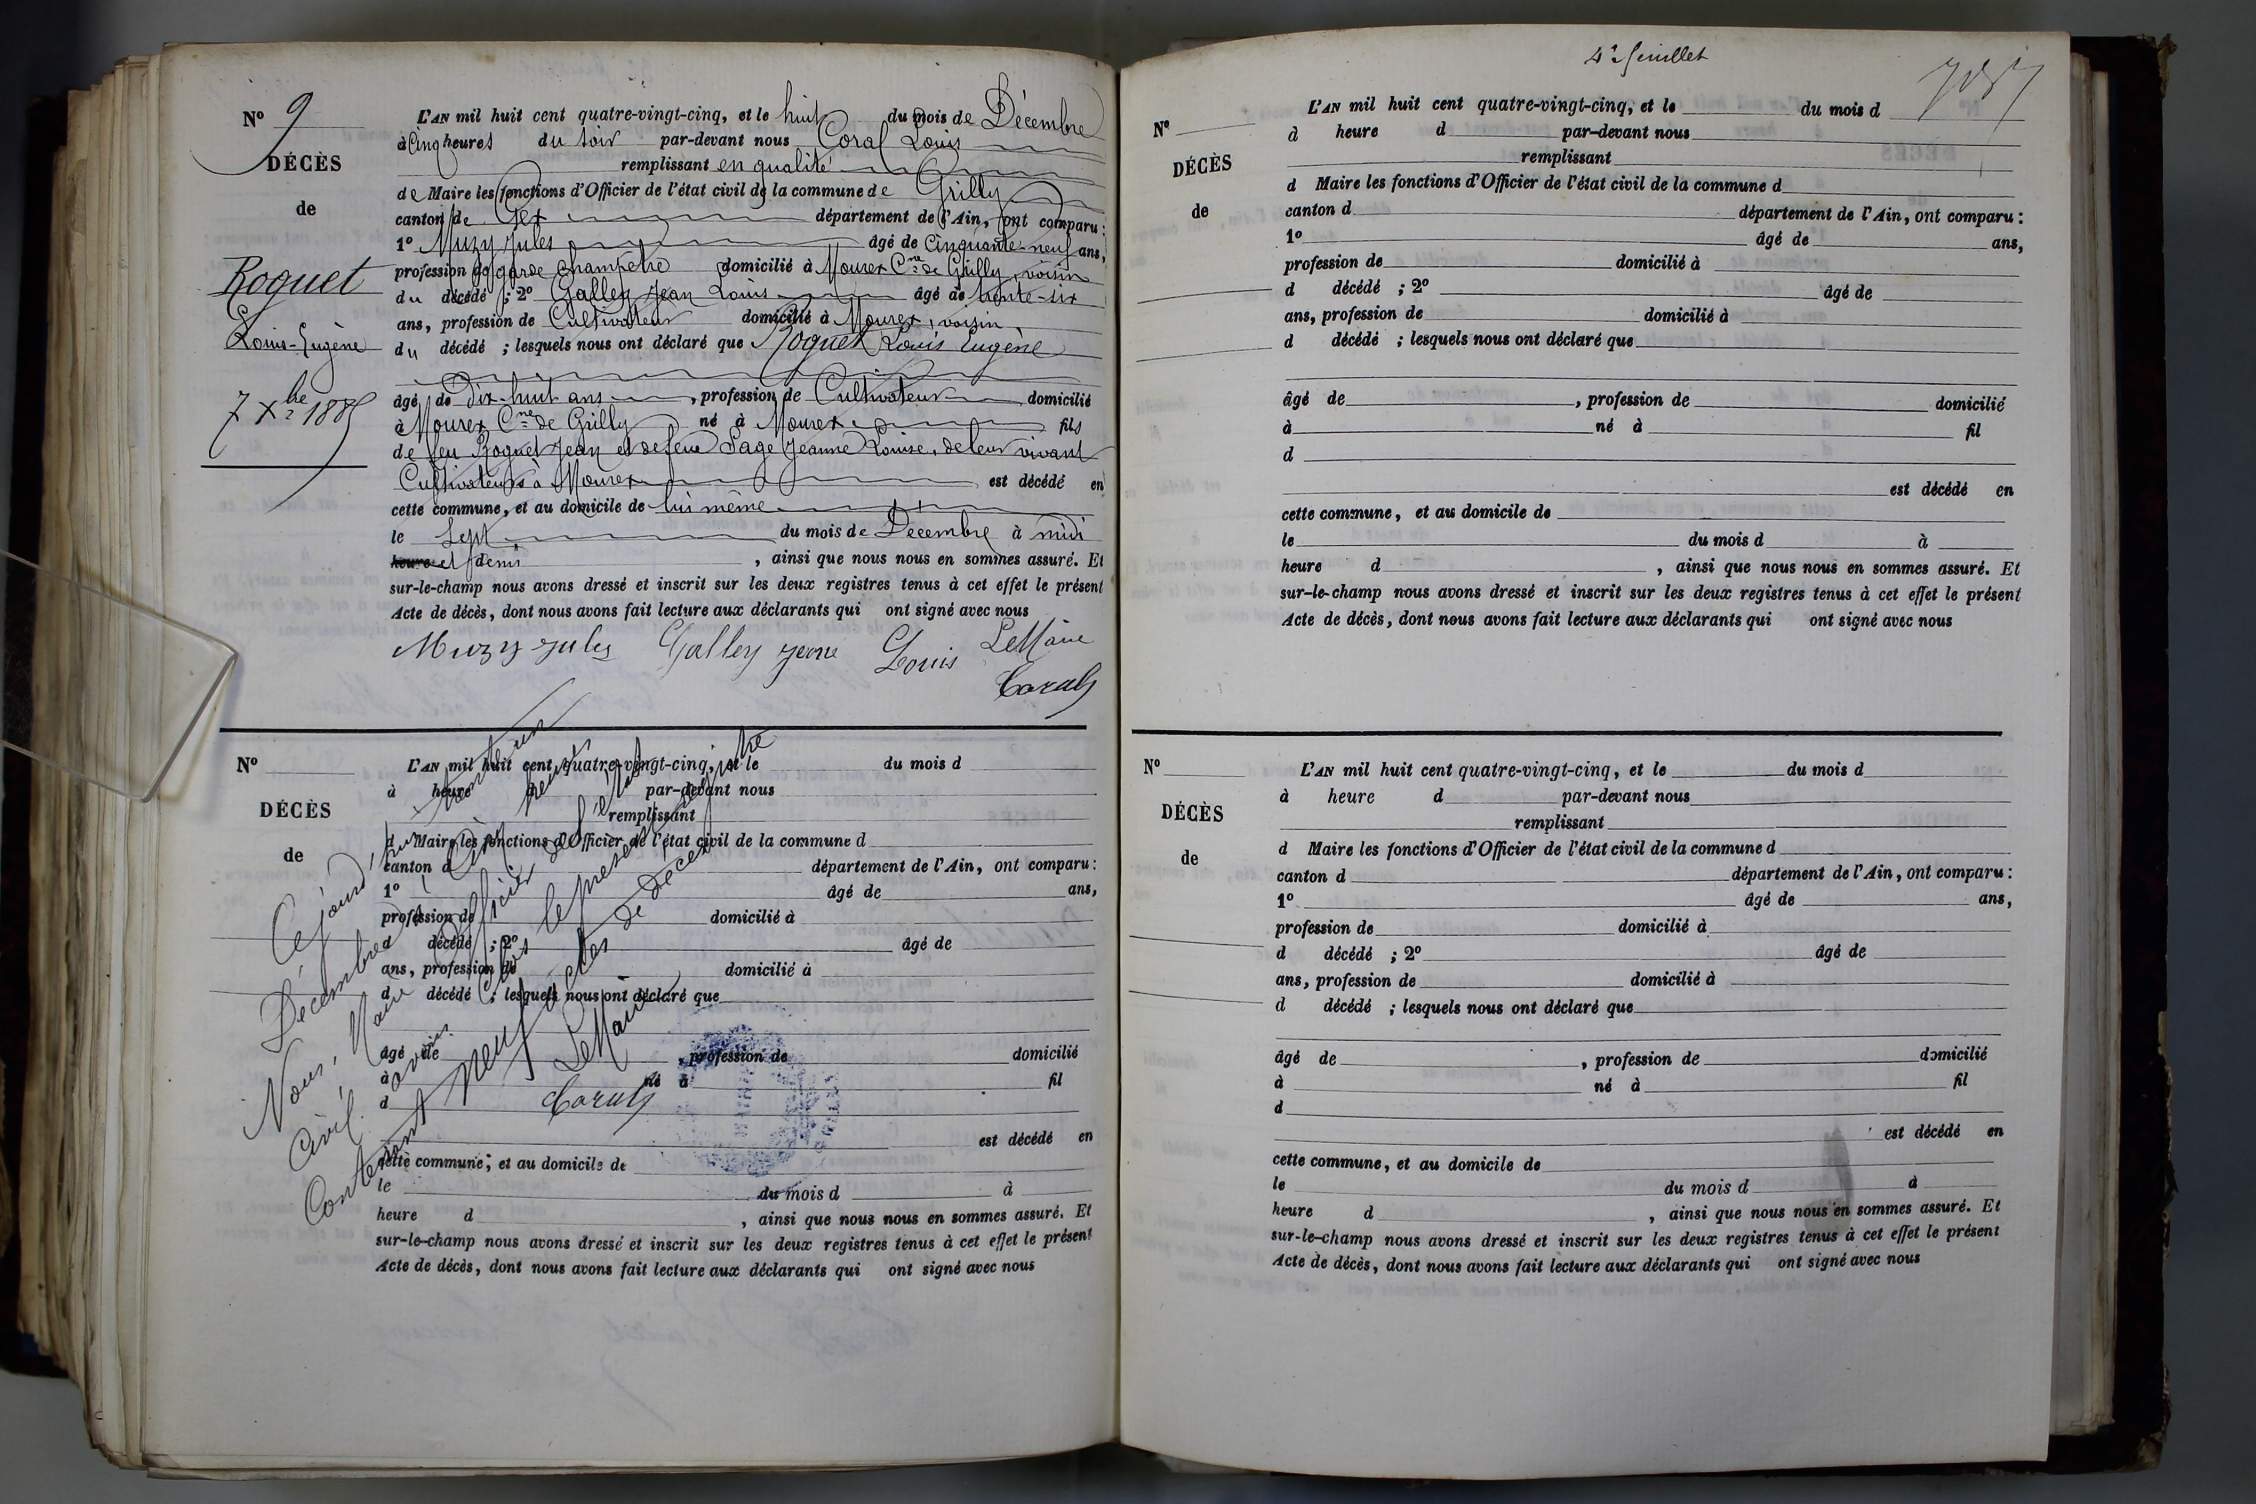 Nº 9
DÉCÈS
de
Roquet
Louis-Eugène
7 Xbre 1885
L'AN mil huit cent quatre-vingt-cinq, et le huit du mois de Décembre
à cinq heures du soir par-devant nous Coral Louis
remplissant en qualité
de Maire les fonctions d'Officier de l'état civil de la commune de Grilly
canton de Gex département de l'Ain, ont comparu :
1º Muzy Jules âgé de cinquante-neuf ans,
profession de garde champêtre domicilié à Mourex Cne de Grilly, voisin
du décédé ; 2º Galley Jean Louis âgé de trente-six
ans, profession de Cultivateur domicilié à Mourex, voisin
du décédé ; lesquels nous ont déclaré que Roquet Louis Eugène
âgé de dix-huit ans, profession de Cultivateur domicilié
à Mourex Cne de Grilly né à Mourex fils
de feu Roquet Jean et de feue Sage Jeanne Louise, de leur vivant
Cultivateurs à Mourex est décédé en
cette commune, et au domicile de lui même
le sept du mois de Décembre à midi
heure et demi, ainsi que nous nous en sommes assuré. Et
sur-le-champ nous avons dressé et inscrit sur les deux registres tenus à cet effet le présent
Acte de décès, dont nous avons fait lecture aux déclarants qui ont signé avec nous
Muzy Jules Galley Louis Le Maire
Coral
Nº
DÉCÈS
de
L'AN mil huit cent quatre-vingt-cinq, et le du mois d
à heure d par-devant nous
remplissant
d Maire les fonctions d'Officier de l'état civil de la commune d
canton d département de l'Ain, ont comparu :
1º âgé de ans,
profession de domicilié à
d décédé ; 2º âgé de
ans, profession de domicilié à
d décédé ; lesquels nous ont déclaré que
âgé de , profession de domicilié
à né à fil
d
est décédé en
cette commune, et au domicile de
le du mois d à
heure d , ainsi que nous nous en sommes assuré. Et
sur-le-champ nous avons dressé et inscrit sur les deux registres tenus à cet effet le présent
Acte de décès, dont nous avons fait lecture aux déclarants qui ont signé avec nous
Ce jourd'hui trente un
Décembre à cinq heures
Nous, Maire Officier de l'état
Civil avons clos le présent registre
Contenant neuf actes de décès
Le Maire
Coral
4e feuillet
Nº
DÉCÈS
de
L'AN mil huit cent quatre-vingt-cinq, et le du mois d
à heure d par-devant nous
remplissant
d Maire les fonctions d'Officier de l'état civil de la commune d
canton d département de l'Ain, ont comparu :
1º âgé de ans,
profession de domicilié à
d décédé ; 2º âgé de
ans, profession de domicilié à
d décédé ; lesquels nous ont déclaré que
âgé de , profession de domicilié
à né à fil
d
est décédé en
cette commune, et au domicile de
le du mois d à
heure d , ainsi que nous nous en sommes assuré. Et
sur-le-champ nous avons dressé et inscrit sur les deux registres tenus à cet effet le présent
Acte de décès, dont nous avons fait lecture aux déclarants qui ont signé avec nous
Nº
DÉCÈS
de
L'AN mil huit cent quatre-vingt-cinq, et le du mois d
à heure d par-devant nous
remplissant
d Maire les fonctions d'Officier de l'état civil de la commune d
canton d département de l'Ain, ont comparu :
1º âgé de ans,
profession de domicilié à
d décédé ; 2º âgé de
ans, profession de domicilié à
d décédé ; lesquels nous ont déclaré que
âgé de , profession de domicilié
à né à fil
d
est décédé en
cette commune, et au domicile de
le du mois d à
heure d , ainsi que nous nous en sommes assuré. Et
sur-le-champ nous avons dressé et inscrit sur les deux registres tenus à cet effet le présent
Acte de décès, dont nous avons fait lecture aux déclarants qui ont signé avec nous